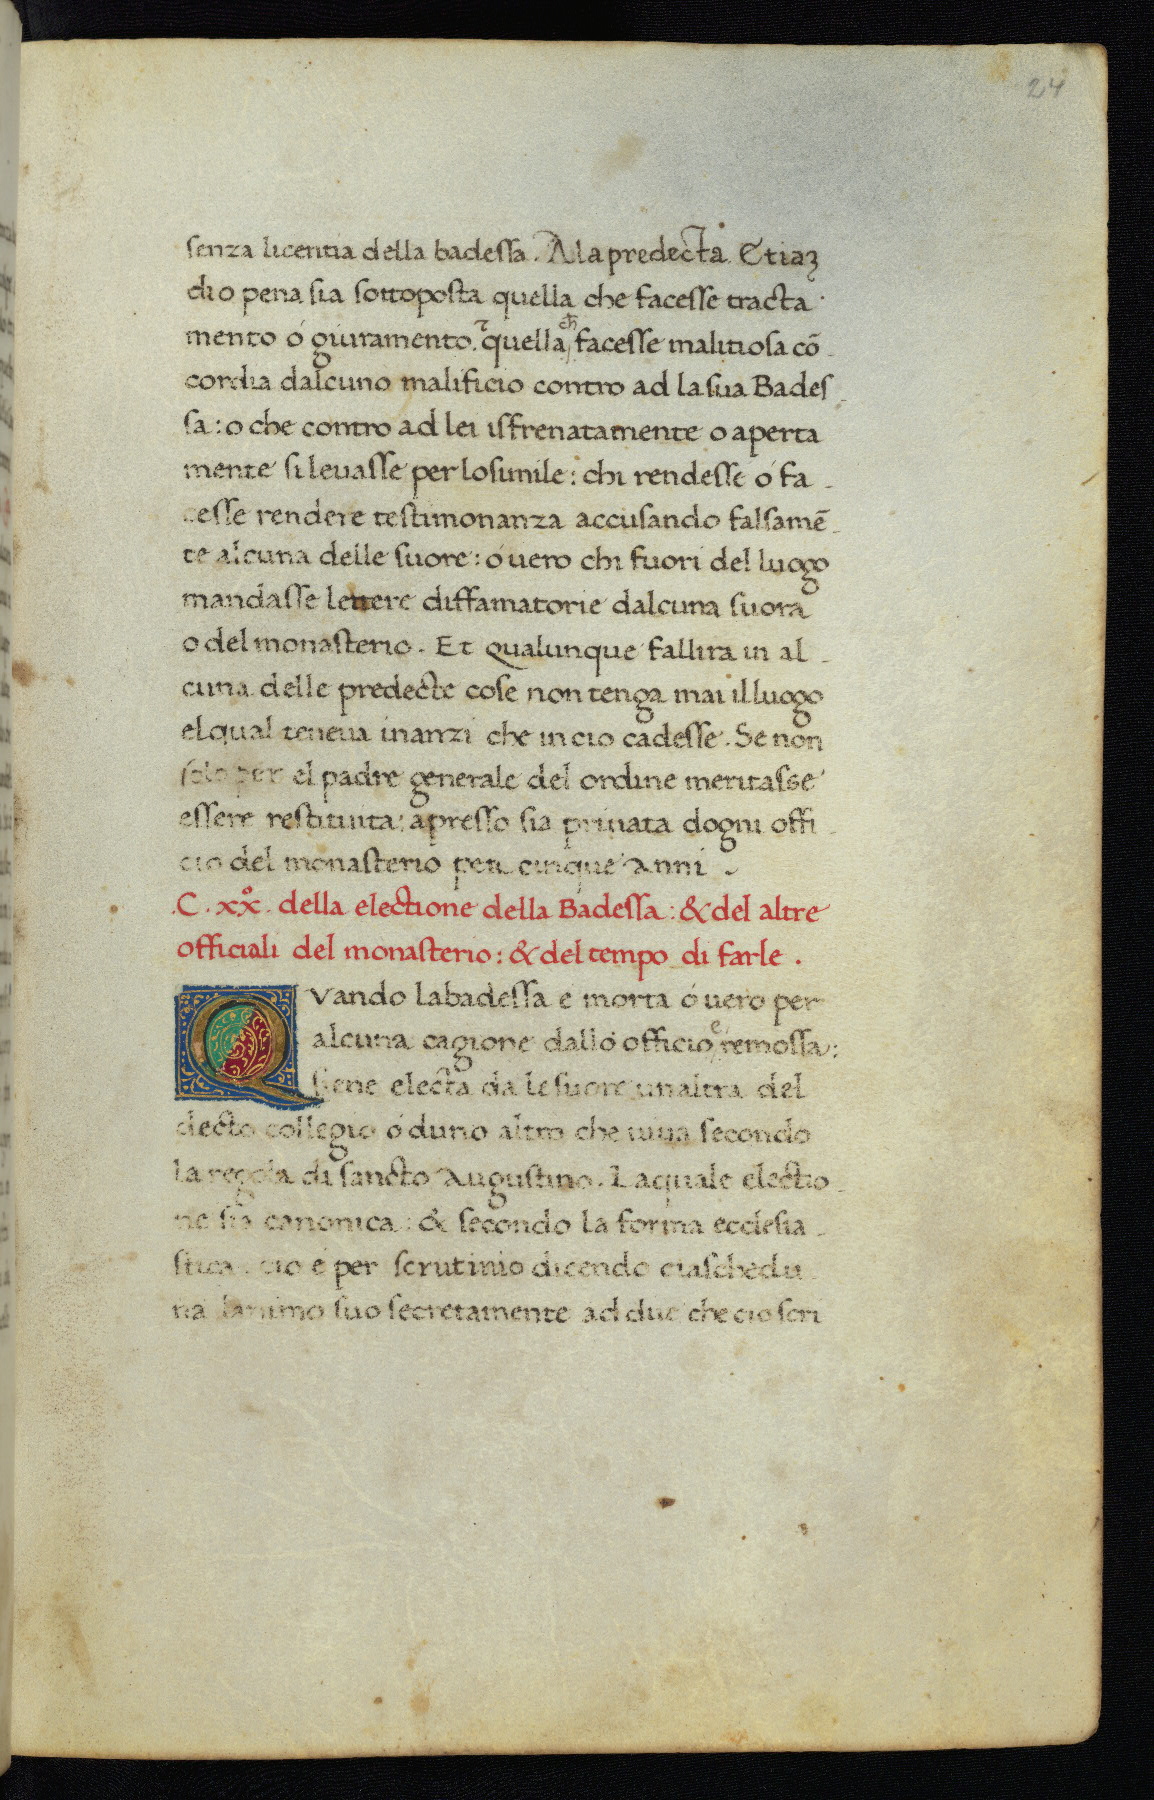 24
senza licentia della badessa. A la predecta. Etiaꝫ
dio pena sia sottoposta quella che facesse tracta
mento o giuramento. ⁊ quella ch̄ facesse malitiosa cō
cordia dalcuno malificio contro ad la sua Bades
sa: o che contro ad lei isfrenatamente o aperta
mente si levasse per lo simile: chi rendesse o fa
cesse rendere testimonanza accusando falsamē
te alcuna delle suore: o uero chi fuori del luogo
mandasse lettere diffamatorie dalcuna suora
o del monasterio. Et qualunque fallira in al
cuna delle predecte cose non tenga mai il luogo
el qual teneua inanzi che in cio cadesse. Se non
solo per el padre generale del ordine meritasse
essere restituita: apresso sia priuata dogni offi
cio del monasterio per cinque anni
.C. xxº. della electione della Badessa: & del altre
officiali del monasterio: & del tempo di farle.
Quando labadessa e morta o uero per
alcuna cagione dallo officio e remossa:
siene electa da le suore unaltra del
decto collegio o duno altro che uiua secondo
la regola di sancto Augustino. Laquale electio
ne sia canonica: & secondo la forma ecclesia
stica. cio e per scrutinio dicendo ciaschedu
na lanimo suo secretamente ad due che cio scri